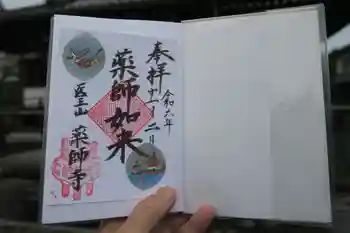 奉拝
令和六年
十一月二日
薬師如来
医王山
薬師寺